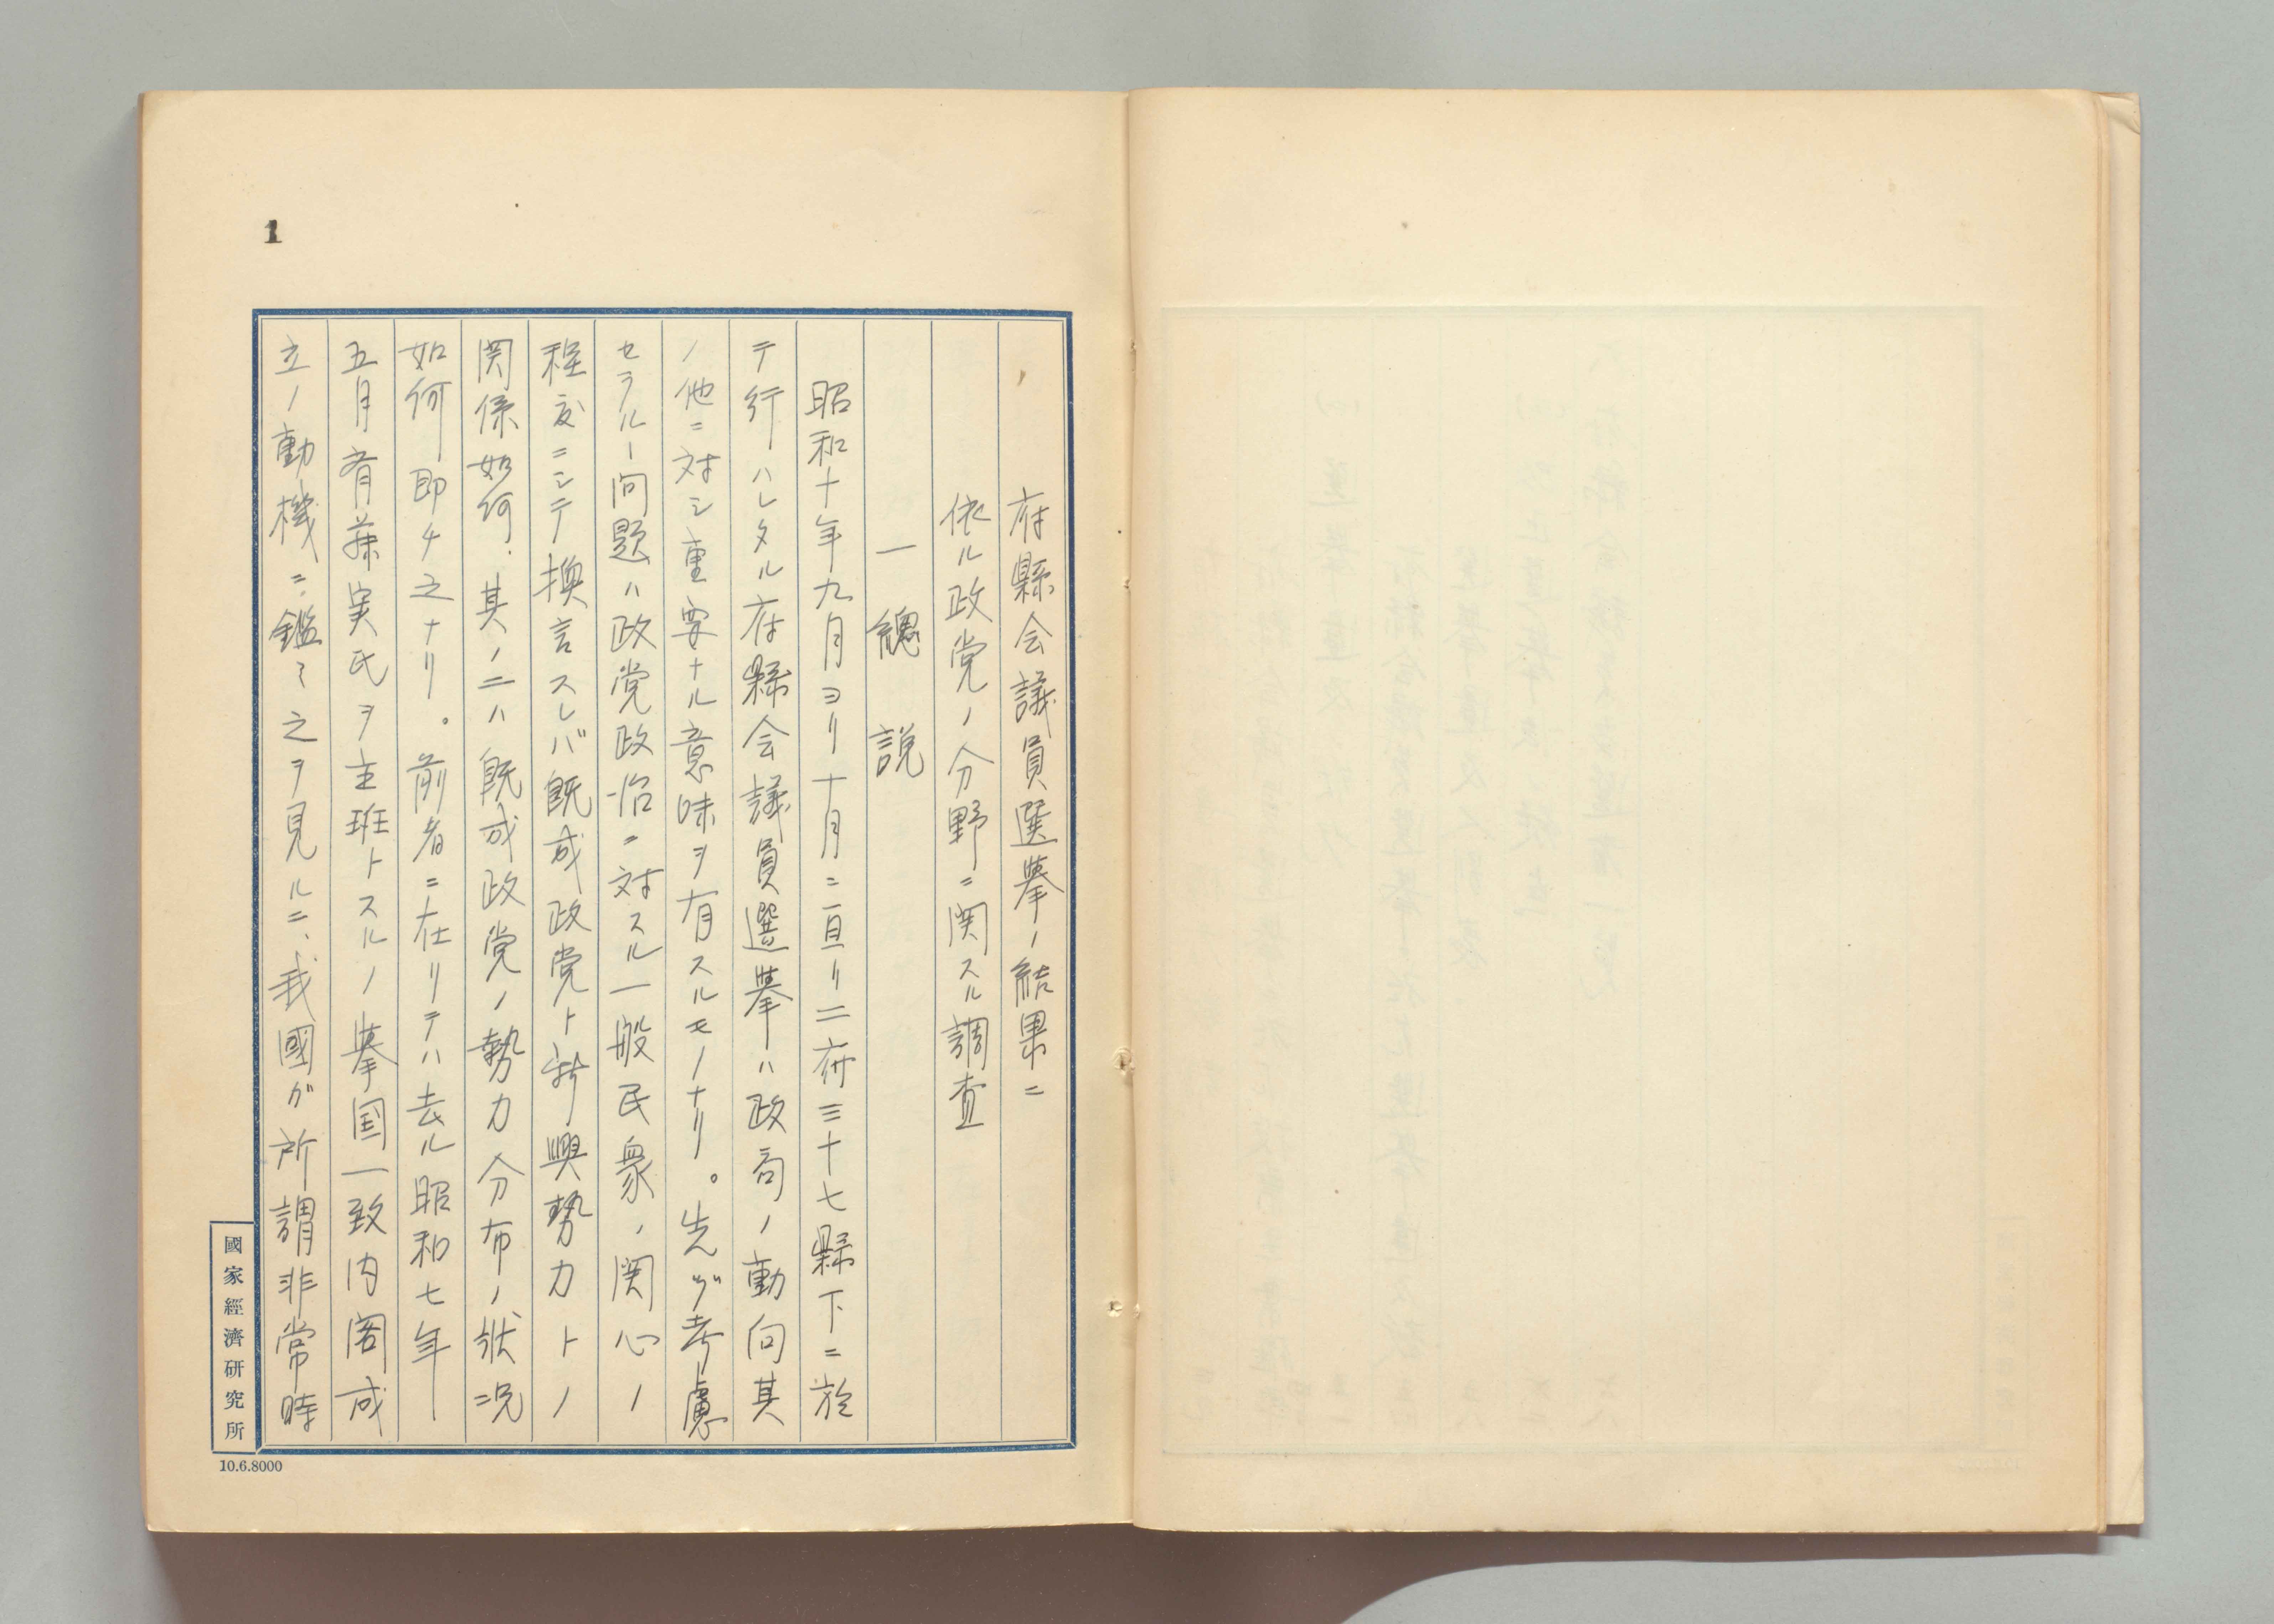 1
府縣会議員選挙ノ結果ニ
依ル政党ノ分野ニ関スル調査
一 總説
昭和十年九月ヨリ十月ニ亘リ二府三十七縣下ニ於
テ行ハレタル府縣会議員選挙ハ政局ノ動向其
ノ他ニ対シ重要ナル意味ヲ有スルモノナリ。先ヅ考慮
セラルヽ問題ハ政党政治ニ対スル一般民衆ノ関心ノ
程度ニシテ換言スレバ既成政党ト新興勢力トノ
関係如何、其ノ二ハ既成政党ノ勢力分布ノ状況
如何 即チ之ナリ。前者ニ在リテハ去ル昭和七年
五月斎藤実氏ヲ主班トスルノ挙国一致内閣成
立ノ動機ニ鑑ミ之ヲ見ルニ、我國ガ所謂非常時
國家經濟研究所
10.6.8000